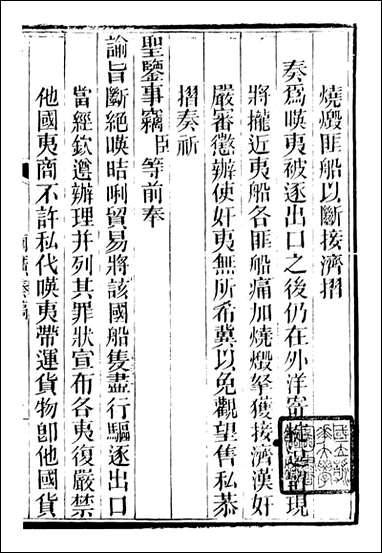 燒燬匪船以斷接濟摺
奏爲嘆夷被逐出口之後仍在外洋寄椗現
將攏近夷船各匪船痛加燒燬拏獲接濟漢奸
嚴審懲辦使奸夷無所希冀以免觀望售私恭
摺奏祈
聖鑒事竊臣等前奉
諭旨斷絕嘆咭唎貿易將該國船隻盡行驅逐出口
當經欽遵辦理并列其罪狀宣布各夷復嚴禁
他國夷商不許私代嘆夷帶運貨物卽他國貨